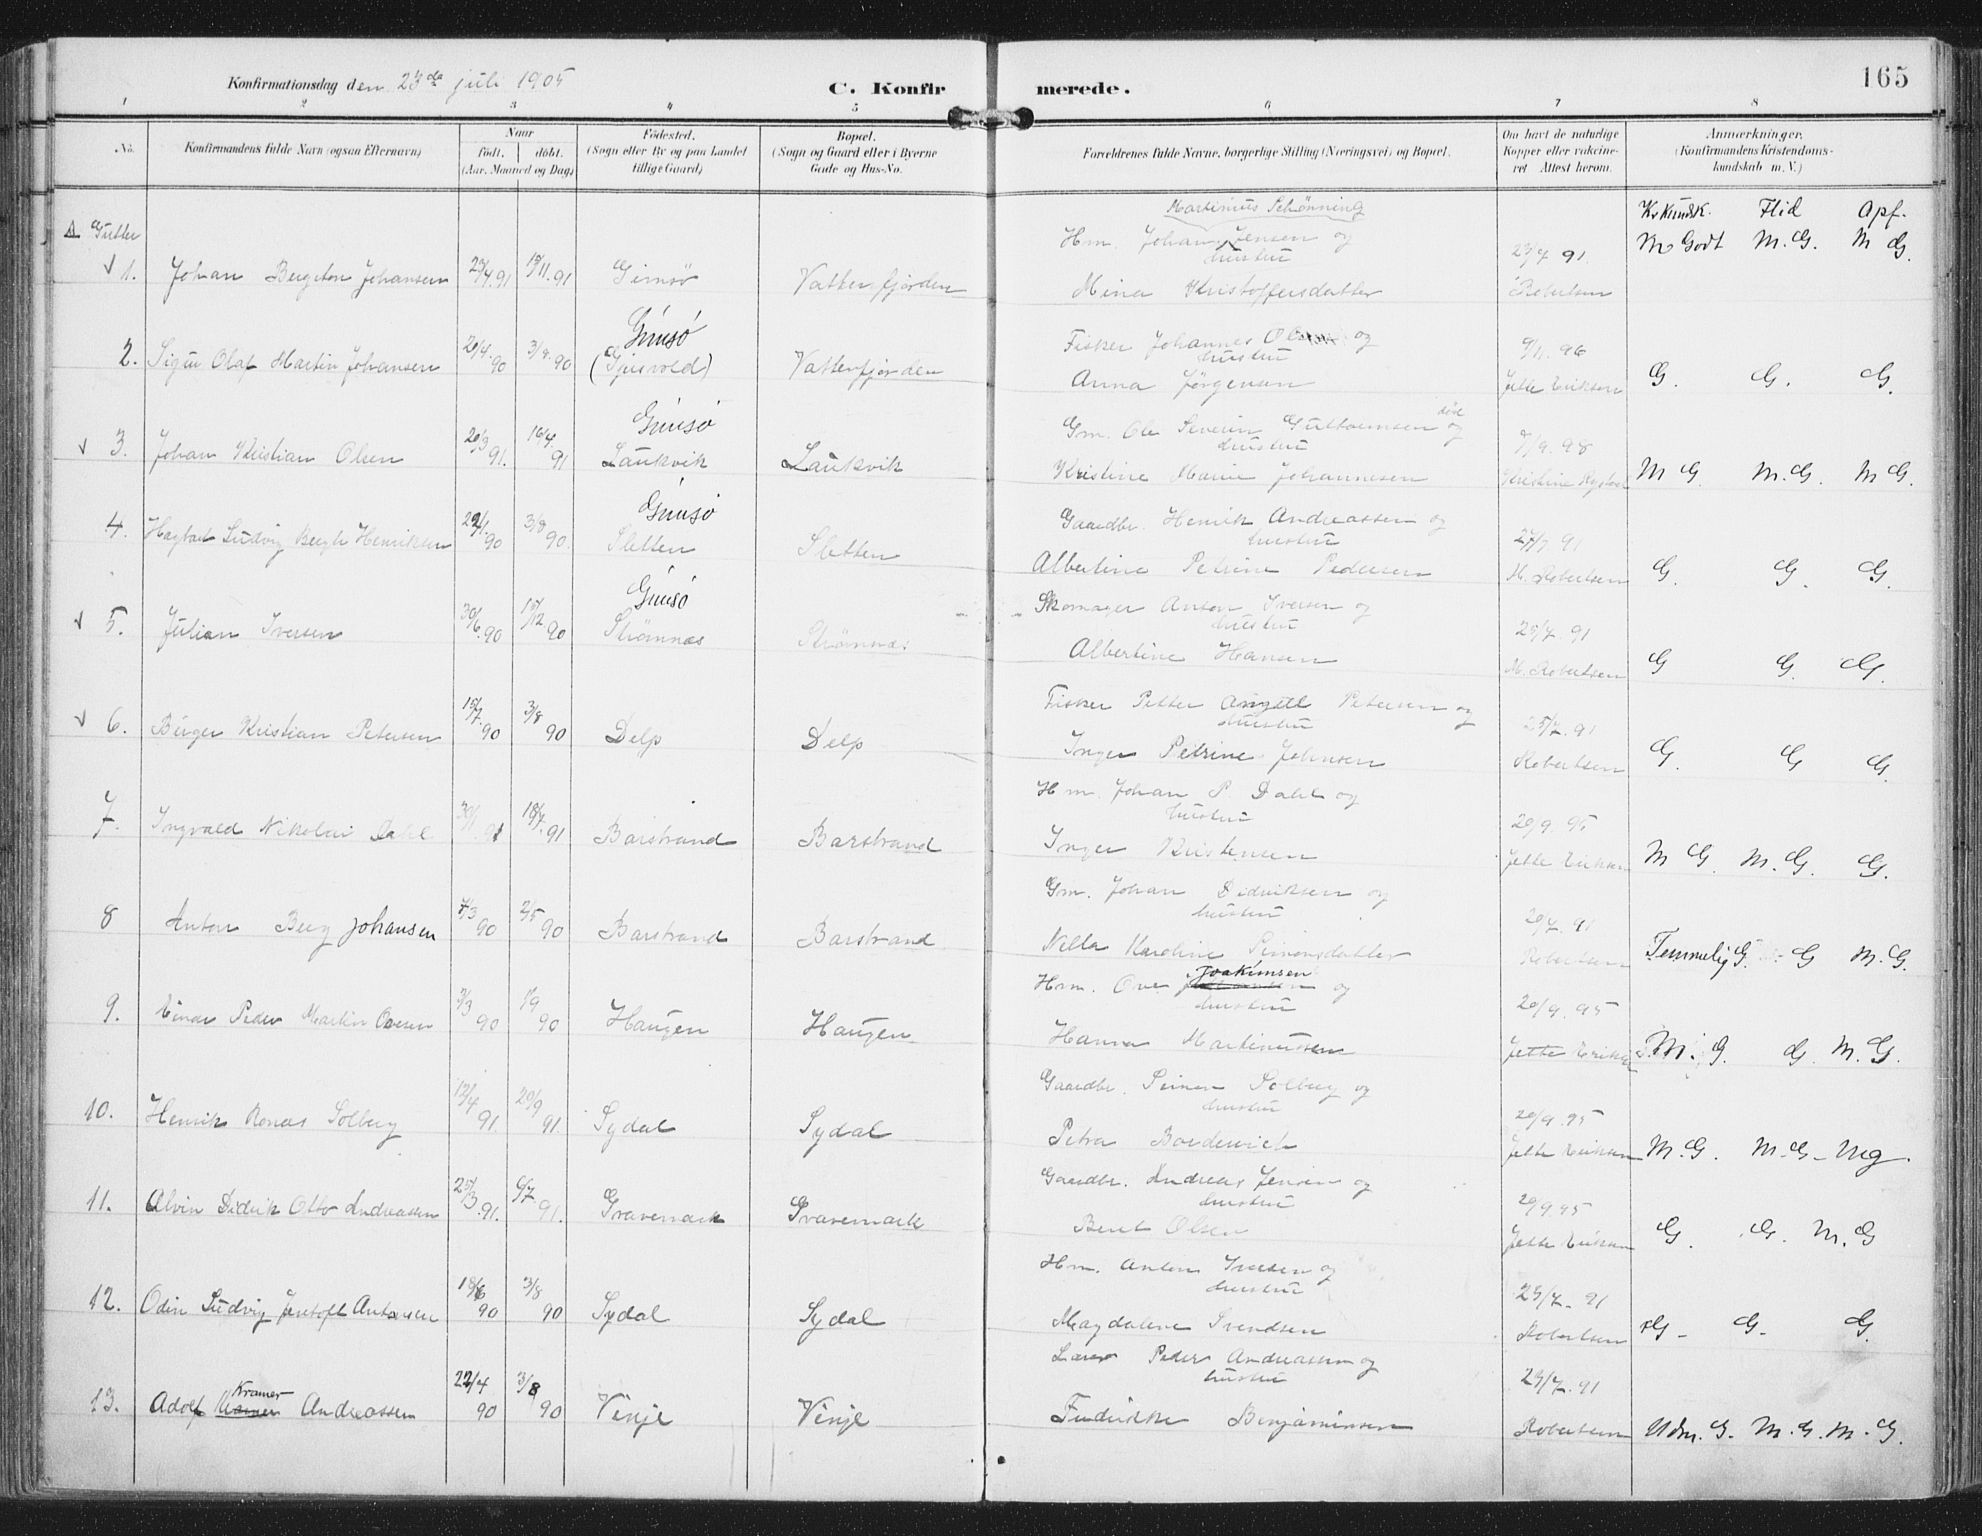 Konfirmationsdag den 23de juli 1905
C. Konfirmerede.
165
1 2 3 4 5 6 7 8
No.
Konfirmandens fulde Navn (ogsaa Efternavn)
Naar
født. døbt.
(Aar, Maaned og Dag)
Fødested.
(Sogn eller By og paa Landet
tillige Gaard)
Bopæl.
(Sogn og Gaard eller i Byerne
Gade og Hus-No.
Forældrenes fulde Navne, borgerlige Stilling (Næringsvei) og Bopæl.
Om havt de naturlige
Kopper eller vakcine-
ret Attest herom.
Anmærkninger.
(Konfirmandens Kristendoms-
kundskab m. V.)
A Gutter
Martinus Schønning
Kr kundsk. Flid Opf.
Hm. Johan Jensen og
hustru
M Godt M.G. M G.
1. Johan Johansen 91 91 Gimsø Vatterfjorden
Mina Kristoffersdatter
23/4 91
Robertsen
Gimsø
Fisker Johannes og
hustru
9/11 96
2. Olaf Martin Johansen 20/4 90 3/8 90 Vatterfjorden
Anna Jørgensen
Jette Eriksen
G. G. G.
Gimsø
Gm. Ole Severin og
hustru
7/9.98
3. Johan Kristian Olsen 20/3 91. 16/4 91 Laukvik Laukvik
Kristine Marie Johannesen
M G. M.G. M G.
Gimsø
Gaardbr. Henrik Andreassen og
hustru
27/7 91
4. Ludvig Henriksen 90 3/8 90. Sletten Sletten
Albertine Petrine Pedersen
M. Robertsen
G. G. G.
Gimsø
Skomager Anton Iversen og
hustru
25/7.91
5. Julian Iversen 30/6.90 90 Strømnæs Strømnæs
Albertine Hansen
M. Robertsen
G G. G.
Fisker Petter Angell Petersen og
hustru
25/7.91
6. Birger Kristian Petersen 15/7.90 3/8 90 Delp Delp
Inger Petrine Johnsen
Robertsen
G. G G.
Hm. Johan P. Dahl og
hustru
20/9.95
7. Ingvald Nikolai Dahl 91 91 Barstrand Barstrand
Inger Kristensen
Jette Eriksen
M G M.G. G.
Gm. Johan Didriksen og
hustru
20/7.91
8 Anton Berg Johansen 90 2/5 90 Barstrand Barstrand
Karoline Simonsdatter
Robertsen
Temmelig G. G M.G.
Joakimsen
Hm. Ove og
hustru
20/9.95
9. Peder Martin Ovesen 90 90 Haugen Haugen
Hanna Martinussen
Jette Eriksen
M. G. G. M.G.
Gaardbr. Simon Solberg og
hustru
20/9.95
10. Henrik Solberg 91. 20/9 91. Sydal Sydal
Petra
Jette Eriksen
M.G. M.G- Mg.
Gaardbr. Andreas Jensen og
hustru
20/9.95
11. Alvin Didrik Otto Andreassen 25/3.91. 91. Gravemark Gravemark
Berit Olsen
Jette Eriksen
G. G. M.G
Hm. Anton Iversen og
hustru
25/7.91
12. Odin Ludvig Jentoft Antonsen 18/6 90 3/8 90 Sydal Sydal
Magdalene Svendsen
Robertsen
G- G- G.
Lærer Peder Andreassen og
hustru
25/7.91
13. Adolf Kramer Andreassen 22/4 90 3/8 90 Vinje Vinje
Fredrikke Benjaminsen
Robertsen
Udm.G. M.G. M.G.